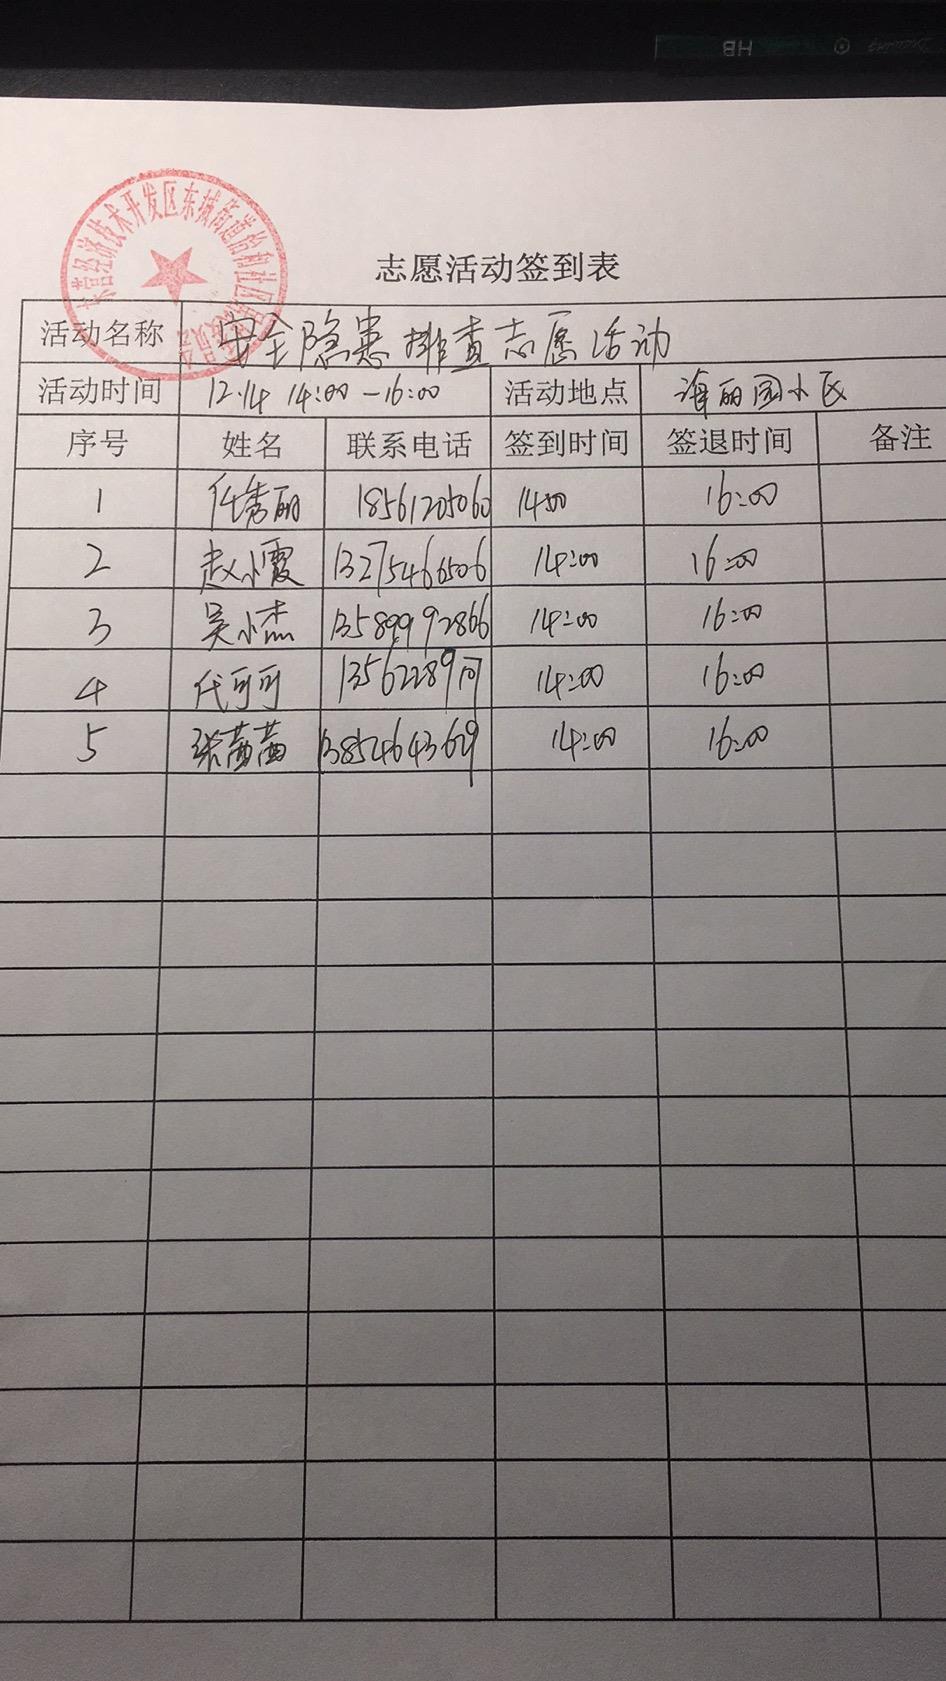 HB
东营经济技术开发区东城街道怡和社区居民委员会
志愿活动签到表
活动名称 安全隐患排查志愿活动
活动时间 12.14 14:00-16:00 活动地点 海丽园小区
序号 姓名 联系电话 签到时间 签退时间 备注
1 任秀丽 18561205060 14:00 16:00
2 赵小霞 13275466506 14:00 16:00
3 吴小杰 13589992866 14:00 16:00
4 代可可 14:00 16:00
5 张茜茜 13854643629 14:00 16:00